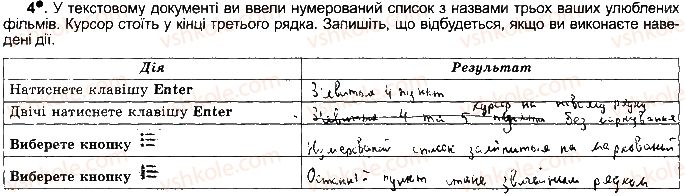 4●. У текстовому документі ви ввели нумерований список з назвами трьох ваших улюблених
фільмів. Курсор стоїть у кінці третього рядка. Запишіть, що відбудеться, якщо ви виконаєте наве-
дені дії.
Дія Результат
Натиснете клавішу Enter З'явиться 4 пункт
Двічі натиснете клавішу Enter курсор на новому рядку без маркування
Виберете кнопку Нумерований список заміниться на маркований
Виберете кнопку Останній пункт стане звичайним рядком